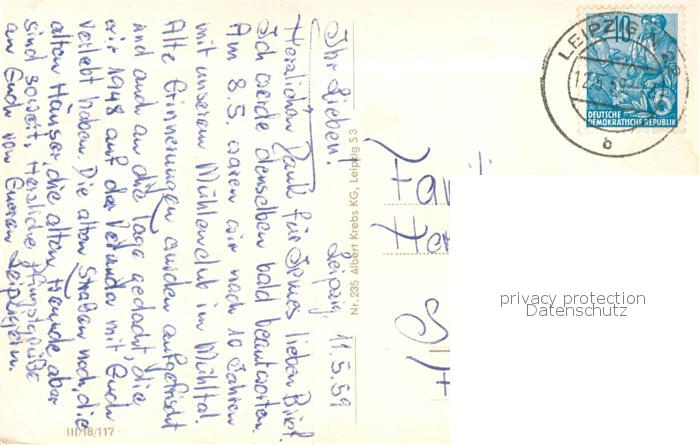 Leipzig, 11.5.59
Ihr Lieben!
Herzlichen Dank für Irmes lieben Brief.
Ich werde denselben bald beantworten.
Am 8.5. waren wir nach 10 Jahren
mit unserem Mühlenclub im Mühltal.
Alte Erinnerungen wurden aufgefrischt
und auch an die Tage gedacht, die
wir 1948 auf der Veranda mit Euch
verlebt haben. Die alten Straßen noch, die
alten Häuser, die alten Freunde, aber
sind soweit. Herzliche Pfingstgrüße
an Euch von Eueren Leipzigern.
III/18/117
Nr. 235 Albert Krebs KG, Leipzig S 3
LEIPZIG
b
10
DEUTSCHE
DEMOKRATISCHE REPUBLIK
privacy protection
Datenschutz